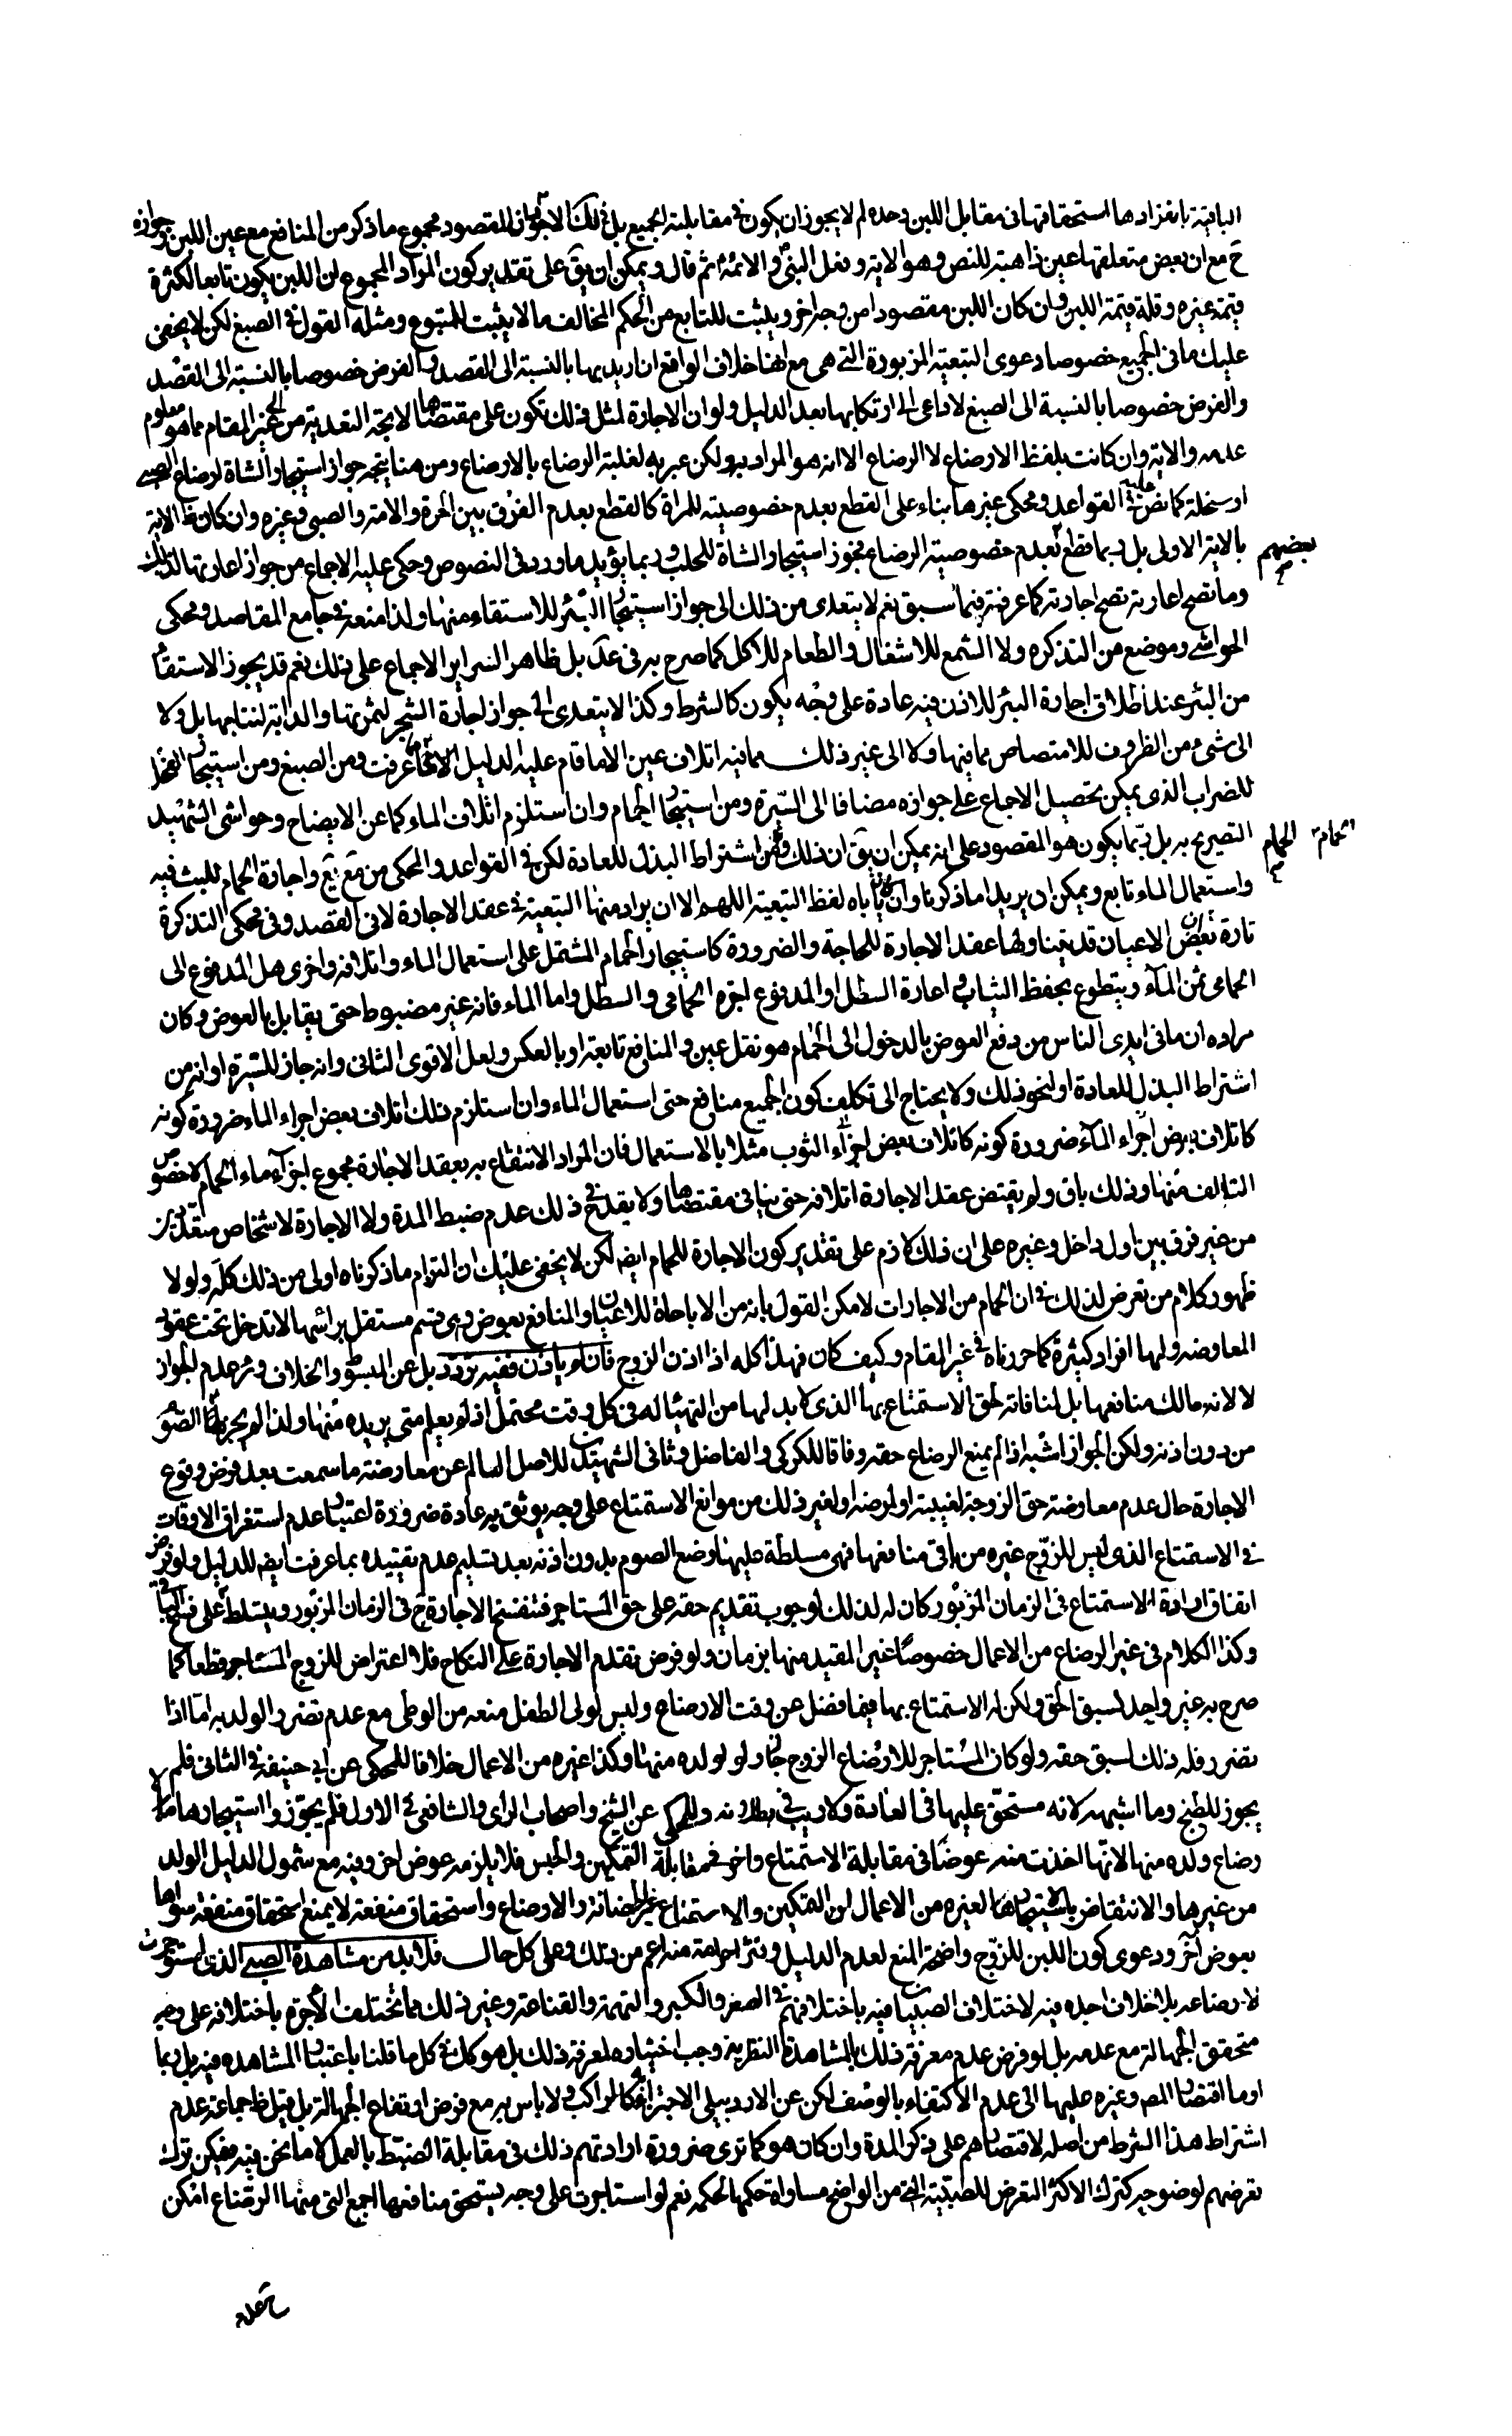 الباقية بانفرادها استحقاقها في مقابل اللبن وحده لم لا يجوز ان يكون في مقابلة الجميع بل في ذلك الاجود ان المقصود مجموع ما ذكر من المنافع مع عين اللبن وجوازه
ح مع ان بعض متعلقها عين ذاهبة للنص وهو الاية وفعل النبي ص والائمة ثم قال ويمكن ان يق على تقدير كون المراد المجموع ان اللبن يكون تابعا لكثرة
قيمة غيره وقلة قيمة اللبن وان كان اللبن مقصودا من وجه اخر ويثبت للتابع من الحكم المخالف ما لا يثبت للمتبوع ومثله القول في الصبغ لكن لا يخفى
عليك ما في الجميع خصوصا دعوى التبعية المزبورة التي هي مع انها خلاف الواقع ان اريد بها بالنسبة الى القصد والغرض خصوصا بالنسبة الى القصد
والغرض خصوصا بالنسبة الى الصبغ لا داعي الى ارتكابها بعد الدليل ولو ان الاجارة لمثل ذلك تكون على مقتضاها لا يتجه التعدية من الى غير المقام مما هو معلوم
علمه والاية وان كانت بلفظ الارضاع لا الرضاع الا انه هو المراد به ولكن عبر به لغلبة الرضاع بالارضاع ومن هنا يتجه جواز استيجار الشاة لرضاع الصبي
او سخلة كما نص عليه في القواعد ومحكى غيرها بناء على القطع بعدم خصوصية للمراة كالقطع بعدم الفرق بين الحرة والامة والصبي وغيره وان كان ظ الاية
بالاية الاولى بل ربما قطع بعضهم بعدم خصوصية الرضاع فجوز استيجار الشاة للحلب وربما يؤيده ما ورد في النصوص وحكى عليه الاجماع من جواز اعارتها لذلك
وما تصح اعارته تصح اجارته كما عرفته فيما سبق نعم لا يتعدى من ذلك الى جواز استيجار البئر للاستقاء منها ولذا منعه في جامع المقاصد ومحكى
الحواشي وموضع من التذكره ولا الشمع للاشعال والطعام للاكل كما صرح به في عد بل ظاهر السراير الاجماع على ذلك نعم قد يجوز الاستقاء
من البئر عند اطلاق اجارة البئر للاذن فيه عادة على وجه يكون كالشرط وكذا لا يتعدى الى جواز اجارة الشجر لثمرتها والدابة لنتاجها بل ولا
الى شيء من الظروف للامتصاص مما فيها ولا الى غير ذلك مما فيه اتلاف عين الا ما قام عليه الدليل كالارضاع كما عرفت ومن الصبغ ومن استيجار الفحل
للضراب الذي يمكن تحصيل الاجماع على جوازه مضافا الى السيرة ومن استيجار الحمام وان استلزم اتلاف الماء كما عن الايضاح وحواشي الشهيد
التصريح به بل ربما يكون هو المقصود على انه يمكن ان يق ان ذلك من اشتراط البذل للعادة لكن في القواعد والمحكى من مع يع واجارة الحمام للبث فيه
واستعمال الماء تابع ويمكن ان يريد ما ذكرنا وان كان ياباه لفظ التبعية اللهم الا ان يراد منها التبعية في عقد الاجارة لا في القصد وفي محكى التذكرة
تارة ان بعض الاعيان قد يتناولها عقد الاجارة للحاجة والضرورة كاستيجار الحمام المشتمل على استعمال الماء واتلافه واخرى هل المدفوع الى
الحمامي ثمن الماء ويتطوع بحفظ الثياب واعارة السطل او المدفوع اجرة الحمامي والسطل واما الماء فانه غير مضبوط حتى يقابل بالعوض وكان
مراده ان ما في ايدي الناس من دفع العوض بالدخول الى الحمام هو نقل عين والمنافع تابعة او بالعكس ولعل الاقوى الثاني وانه جاز للسيرة او انه من
اشتراط البذل للعادة او لنحو ذلك ولا يحتاج الى تكلف كون الجميع منافع حتى استعمال الماء وان استلزم ذلك اتلاف بعض اجزاء الماء ضرورة كونه
كاتلاف بعض اجزاء الماء ضرورة كونه كاتلاف بعض اجزاء الثوب مثلا بالاستعمال فان المراد الانتفاع به بعقد الاجارة مجموع اجزاء ماء الحمام لا خصوص
التالف منها وذلك باق ولم يقتض عقد الاجارة اتلافه حتى ينافي مقتضاها ولا يقدح في ذلك عدم ضبط المدة ولا الاجارة لاشخاص متعددين
من غير فرق بين اول داخل وغيره على ان ذلك لازم على تقدير كون الاجارة للحمام ايض لكن لا يخفى عليك ان التزام ما ذكرناه اولى من ذلك كله ولولا
ظهور كلام من تعرض لذلك في ان الحمام من الاجارات لامكن القول بانه من الاباحاة للاعيان والمنافع بعوض وهى قسم مستقل براسها لا تدخل تحت عقود
المعاوضه ولها افراد كثيرة كما حررناه في غير المقام وكيف كان فهذا كله اذا اذن الزوج فان لم ياذن ففيه تردد بل عن المبسوط والخلاف وئر عدم الجواز
لا لانه مالك منافعها بل لمنافاته لحق الاستمتاع بها الذي لا بد لها من التهيئا له في كل وقت محتمل اذ لم يعلم متى يريده منها ولذا لم يجز لها الصوم
من دون اذنه ولكن الجواز اشبه اذا لم يمنع الرضاع حقه وفاقا للكركي والفاضل وثاني الشهيدين للاصل السالم عن معارضته ما سمعت بعد فرض وقوع
الاجارة حال عدم معارضة حق الزوجة لغيبته او لمرضه او لغير ذلك من موانع الاستمتاع على وجه يوثق به عادة ضرورة اعتبار عدم استغراق الاوقات
في الاستمتاع الذي ليس للزوج غيره من باقي منافعها فهي مسلطة عليها ومنع الصوم بدون اذنه بعد تسليم عدم تقييده بما عرفت ايض للدليل ولو فرض
اتفاق ارادة الاستمتاع في الزمان المزبور كان له لذلك لوجوب تقديم حقه على حق المستاجر فتنفسخ الاجارة ح في الزمان المزبور ويتسلط على فسخ الباقي
وكذا الكلام في غير الرضاع من الاعمال خصوصا غير المقيد منها بزمان ولو فرض تقدم الاجارة على النكاح فلا اعتراض للزوج المستاجر قطعا كما
صرح به غير واحد لسبق الحق ولكن له الاستمتاع بها فيما فضل عن وقت الارضاع وليس لولي الطفل منعه من الوطي مع عدم تضرر الولد به اما اذا
تضرر فله ذلك لسبق حقه ولو كان المستاجر للارضاع الزوج جاز ولو لولده منها وكذا غيره من الاعمال خلافا للمحكى عن ابي حنيفة في الثاني فلم
يجوز للطبخ وما اشبهه لانه مستحق عليها في العادة ولا ريب في بطلانه وللمحكى عن الشيخ واصحاب الراى والشافعي في الاول فلم يجوزوا استيجارها
رضاع ولده منها لانها اخذت منه عوضا في مقابلة الاستمتاع واخر في مقابلة التمكين والحبس فلا يلزمه عوض اخر وفيه مع شمول الدليل الولد
من غيرها والانتقاض باستيجارها لغيره من الاعمال ان التمكين والاستمتاع غير الحضانة والارضاع واستحقاق منفعة لا يمنع استحقاق منفعة سواها
بعوض آخر ودعوى كون اللبن للزوج واضحة المنع لعدم الدليل ونشر الحرمة منه اعم من ذلك وعلى كل حال فلا بد من مشاهدة الصبي الذي استوجرت
لارضاعه بلا خلاف اجده فيه لاختلاف الصبيان فيه باختلافهم في الصغر والكبر والنهمة والقناعة وغير ذلك مما تختلف الاجرة باختلافه على وجه
متحقق الجهالة مع عدمه بل لو فرض عدم معرفة ذلك بالمشاهدة النظرية وجب اختياره لمعرفة ذلك بل هو كك في كل ما قلنا باعتبار المشاهده فيه بل ربما
اوما اقتصار المص وغيره عليها الى عدم الاكتفاء بالوصف لكن عن الاردبيلي الاجتزاء به كالراكب ولا باس به مع فرض ارتفاع الجهالة بل قيل ظ جماعة عدم
اشتراط هذا الشرط من اصله لاقتصارهم على ذكر المدة وان كان هو كما ترى ضرورة ارادتهم ذلك في مقابلة الضبط بالعمل لا ما نحن فيه فيمكن ترك
تعرضهم لوضوحه كترك الاكثر التعرض للصبية التي من الواضح مساواة حكمها لحكمه نعم لو استاجرت على وجه يستحق منافعها اجمع التي منها الرضاع امكن